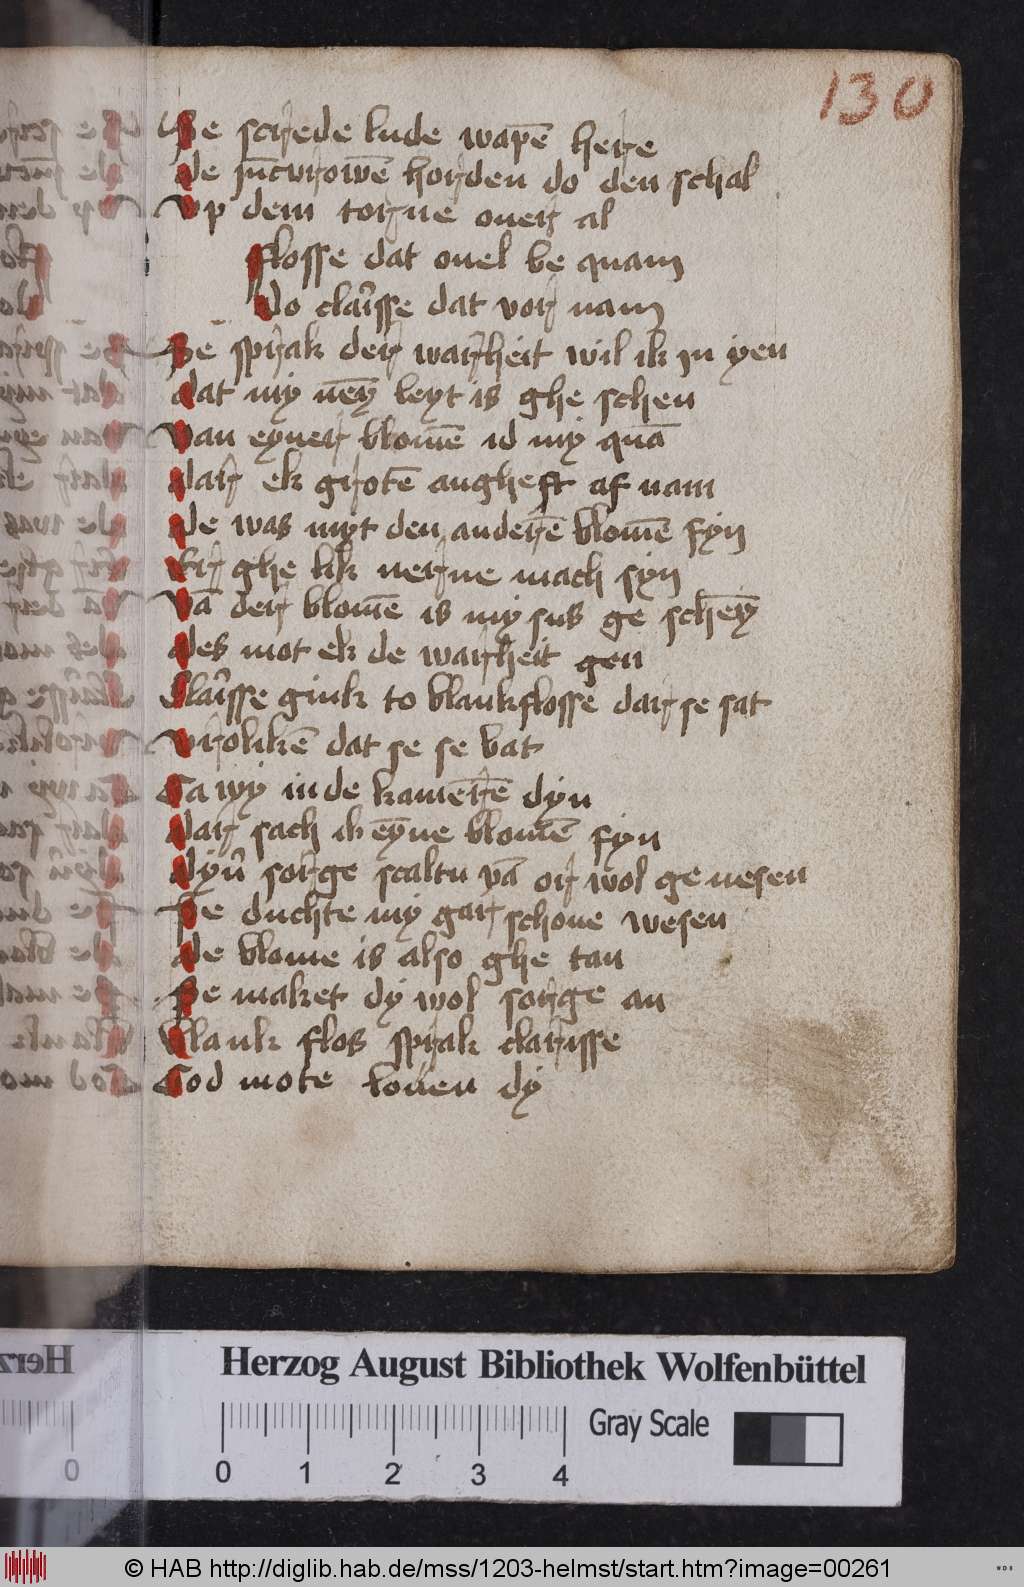 130
Se screde lude wapē here
de ju̅cvrowē horden do den schal
Vp dem torne ouer al
flosse dat ouel be quam
do clarisse dat vor nam
Se sprak der warheit wil ik jn yen
dat my nēy leyt is ghe schen
Van eyner blomē id my quā
dar ek grotē angheft af nam
de was myt den anderē blomē fyn
ghe lik nerne mach syn
Vā der blomē is my sus ge schēy
des mot ek de warheit gen
Clarisse gink to blankflosse dar se sat
vrolikē dat se se bat
Ga wy in de kamerē dyn
dar sach ik eyne blomē fyn
dyn̄ sorge scaltu vā or wol ge nesen
Se duchte my gar schone wesen
de blome is also ghe tan
Se maket dy wol sorge an
Blank flos sprak clarisse
God mote louen dy
Herzog August Bibliothek Wolfenbüttel
0 1 2 3 4
Gray Scale
© HAB http://diglib.hab.de/mss/1203-helmst/start.htm?image=00261